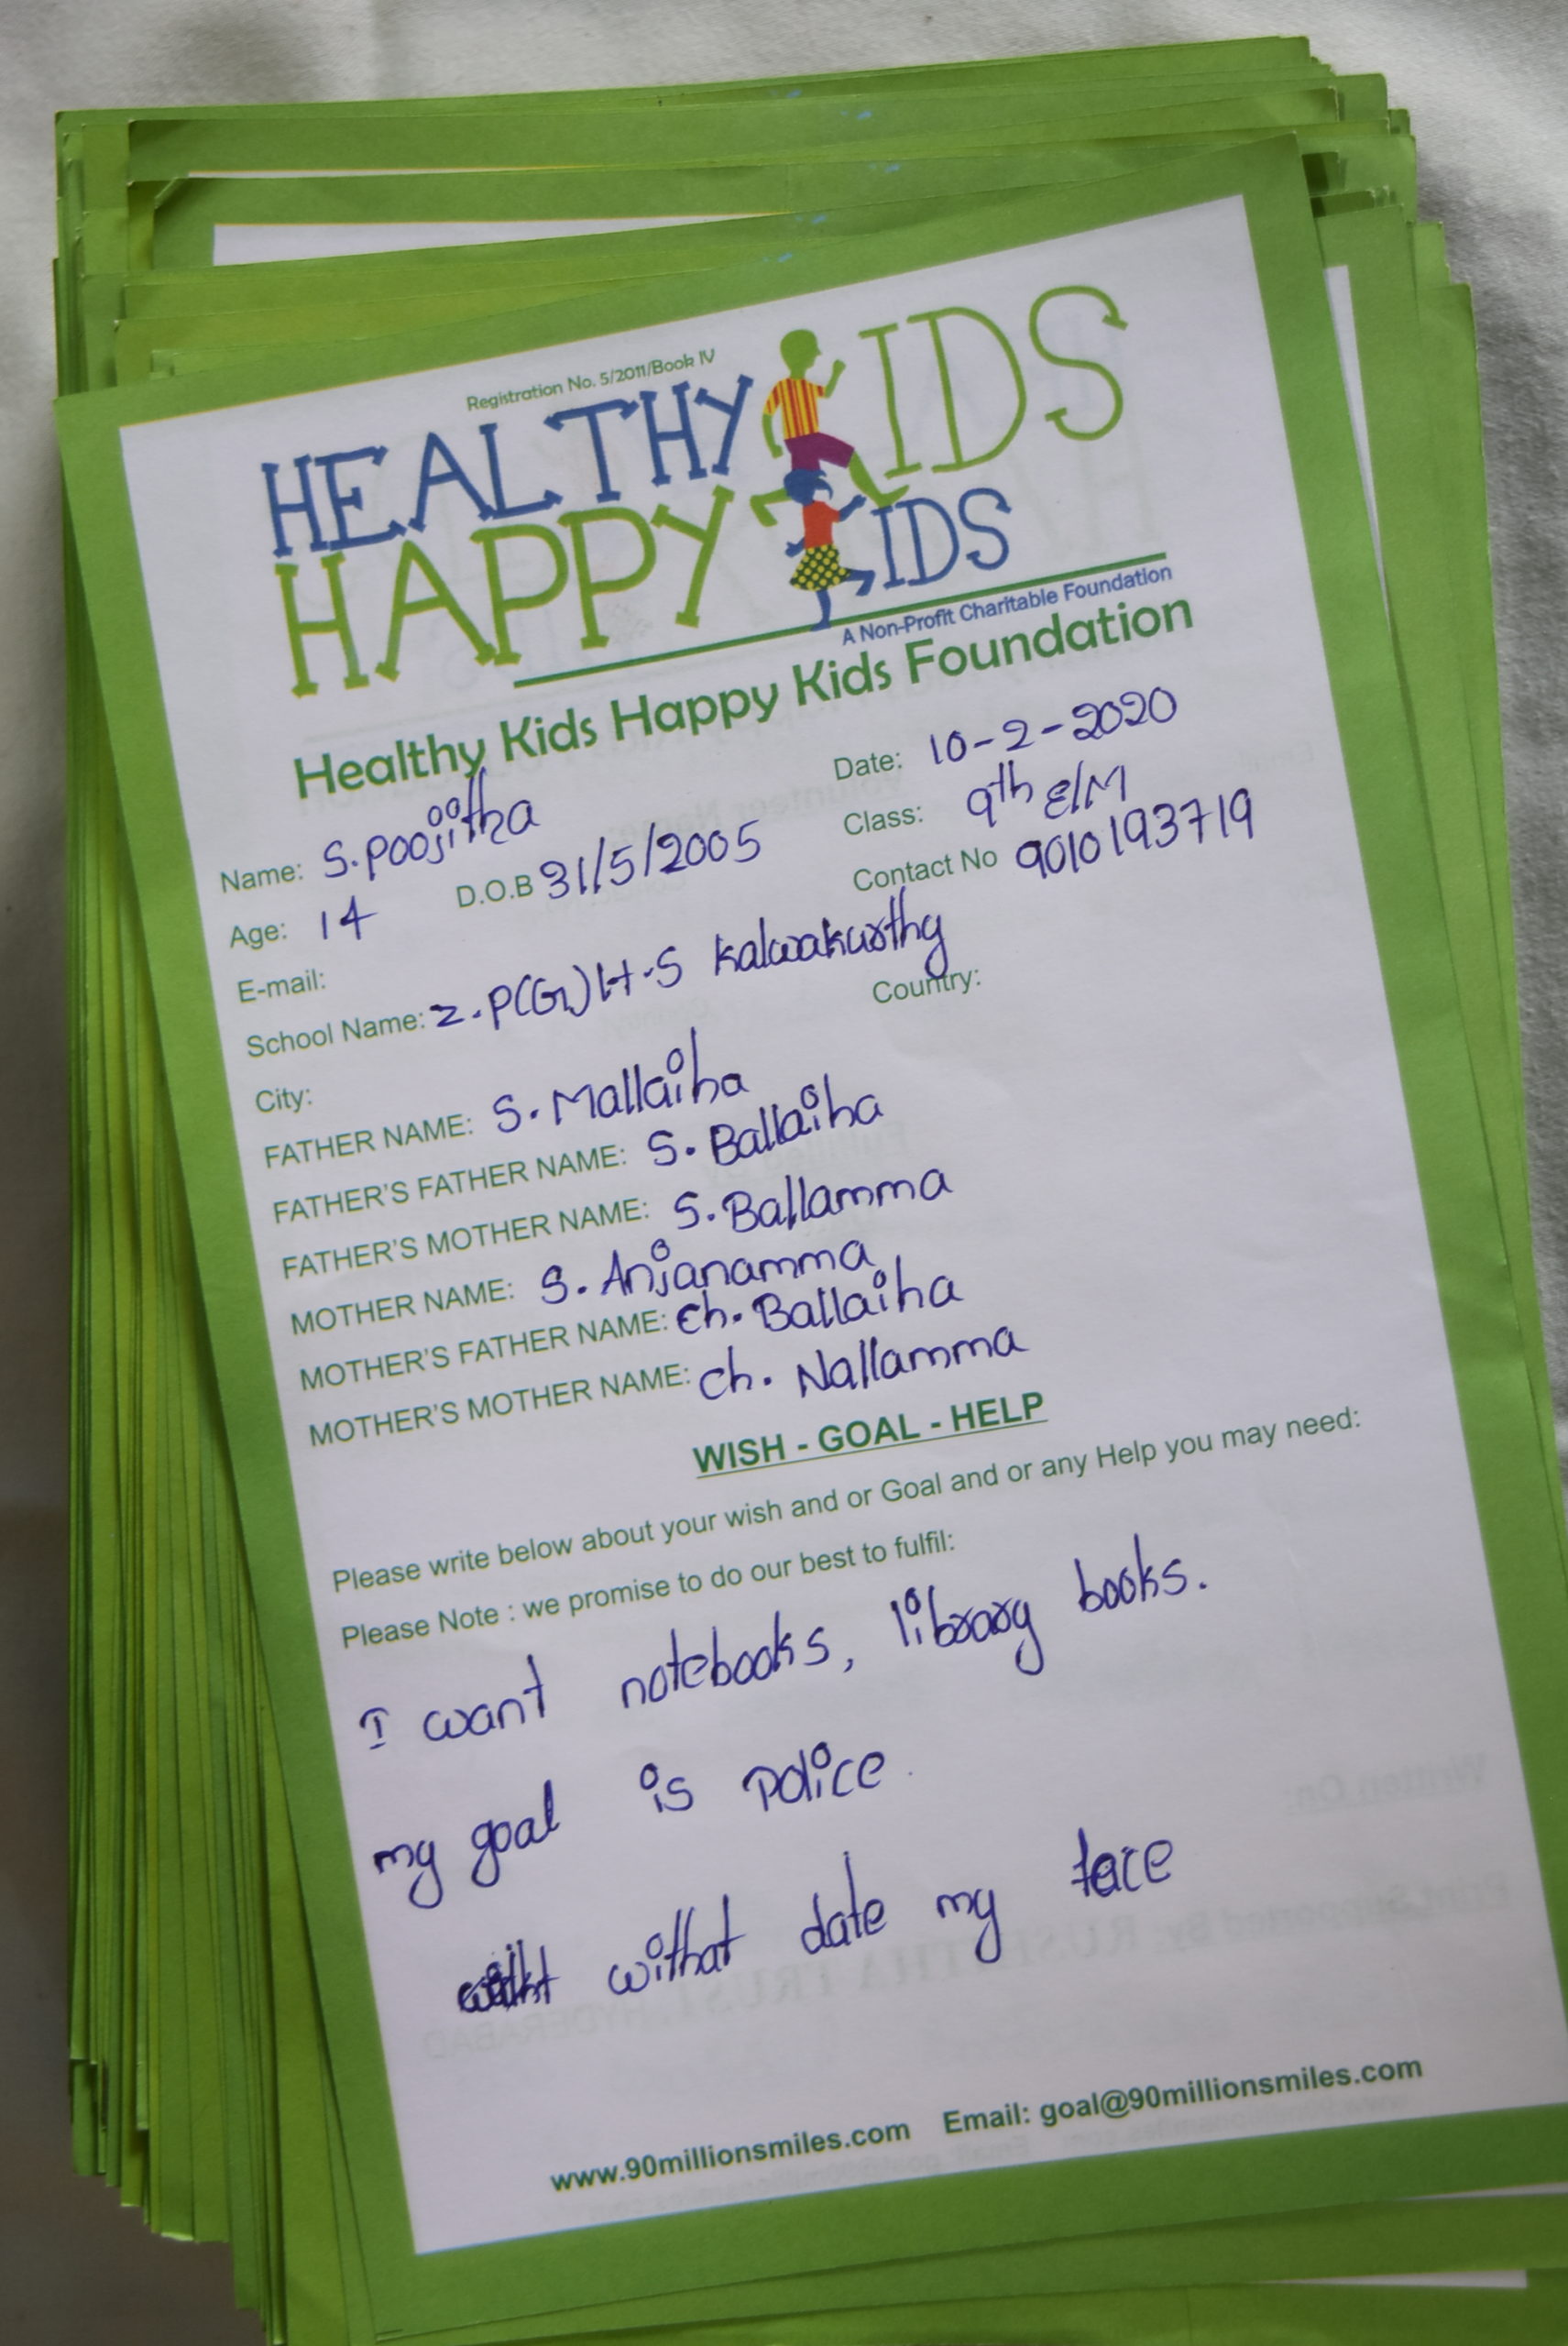 Registration No. 5/2011/Book IV
HEALTHY KIDS
HAPPY KIDS
A Non-Profit Charitable Foundation
Healthy Kids Happy Kids Foundation
Date: 10-2-2020
Name: S.Poojitha
Class: 9th E/M
Age: 14 D.O.B 31/5/2005
Contact No 9010193719
E-mail:
School Name: Z.P(G)H.S Kalwakurthy
City: Country:
FATHER NAME: S. Mallaiha
FATHER'S FATHER NAME: S. Ballaiha
FATHER'S MOTHER NAME: S. Ballamma
MOTHER NAME: S. Anjanamma
MOTHER'S FATHER NAME: Ch. Ballaiha
MOTHER'S MOTHER NAME: Ch. Nallamma
WISH - GOAL - HELP
Please write below about your wish and or Goal and or any Help you may need:
Please Note : we promise to do our best to fulfil:
I want notebooks, library books.
my goal is police.
withat date my
www.90millionsmiles.com Email: goal@90millionsmiles.com